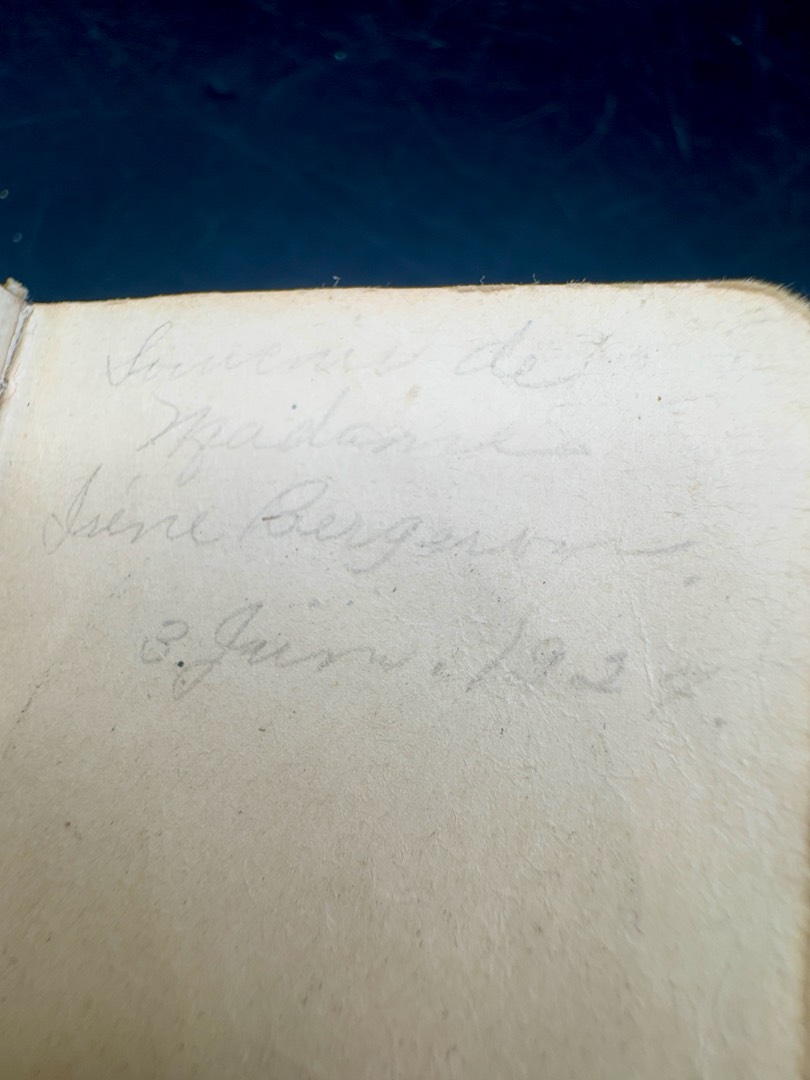 Souvenir de
Madame
Irène Bergeron
3 Juin. 192